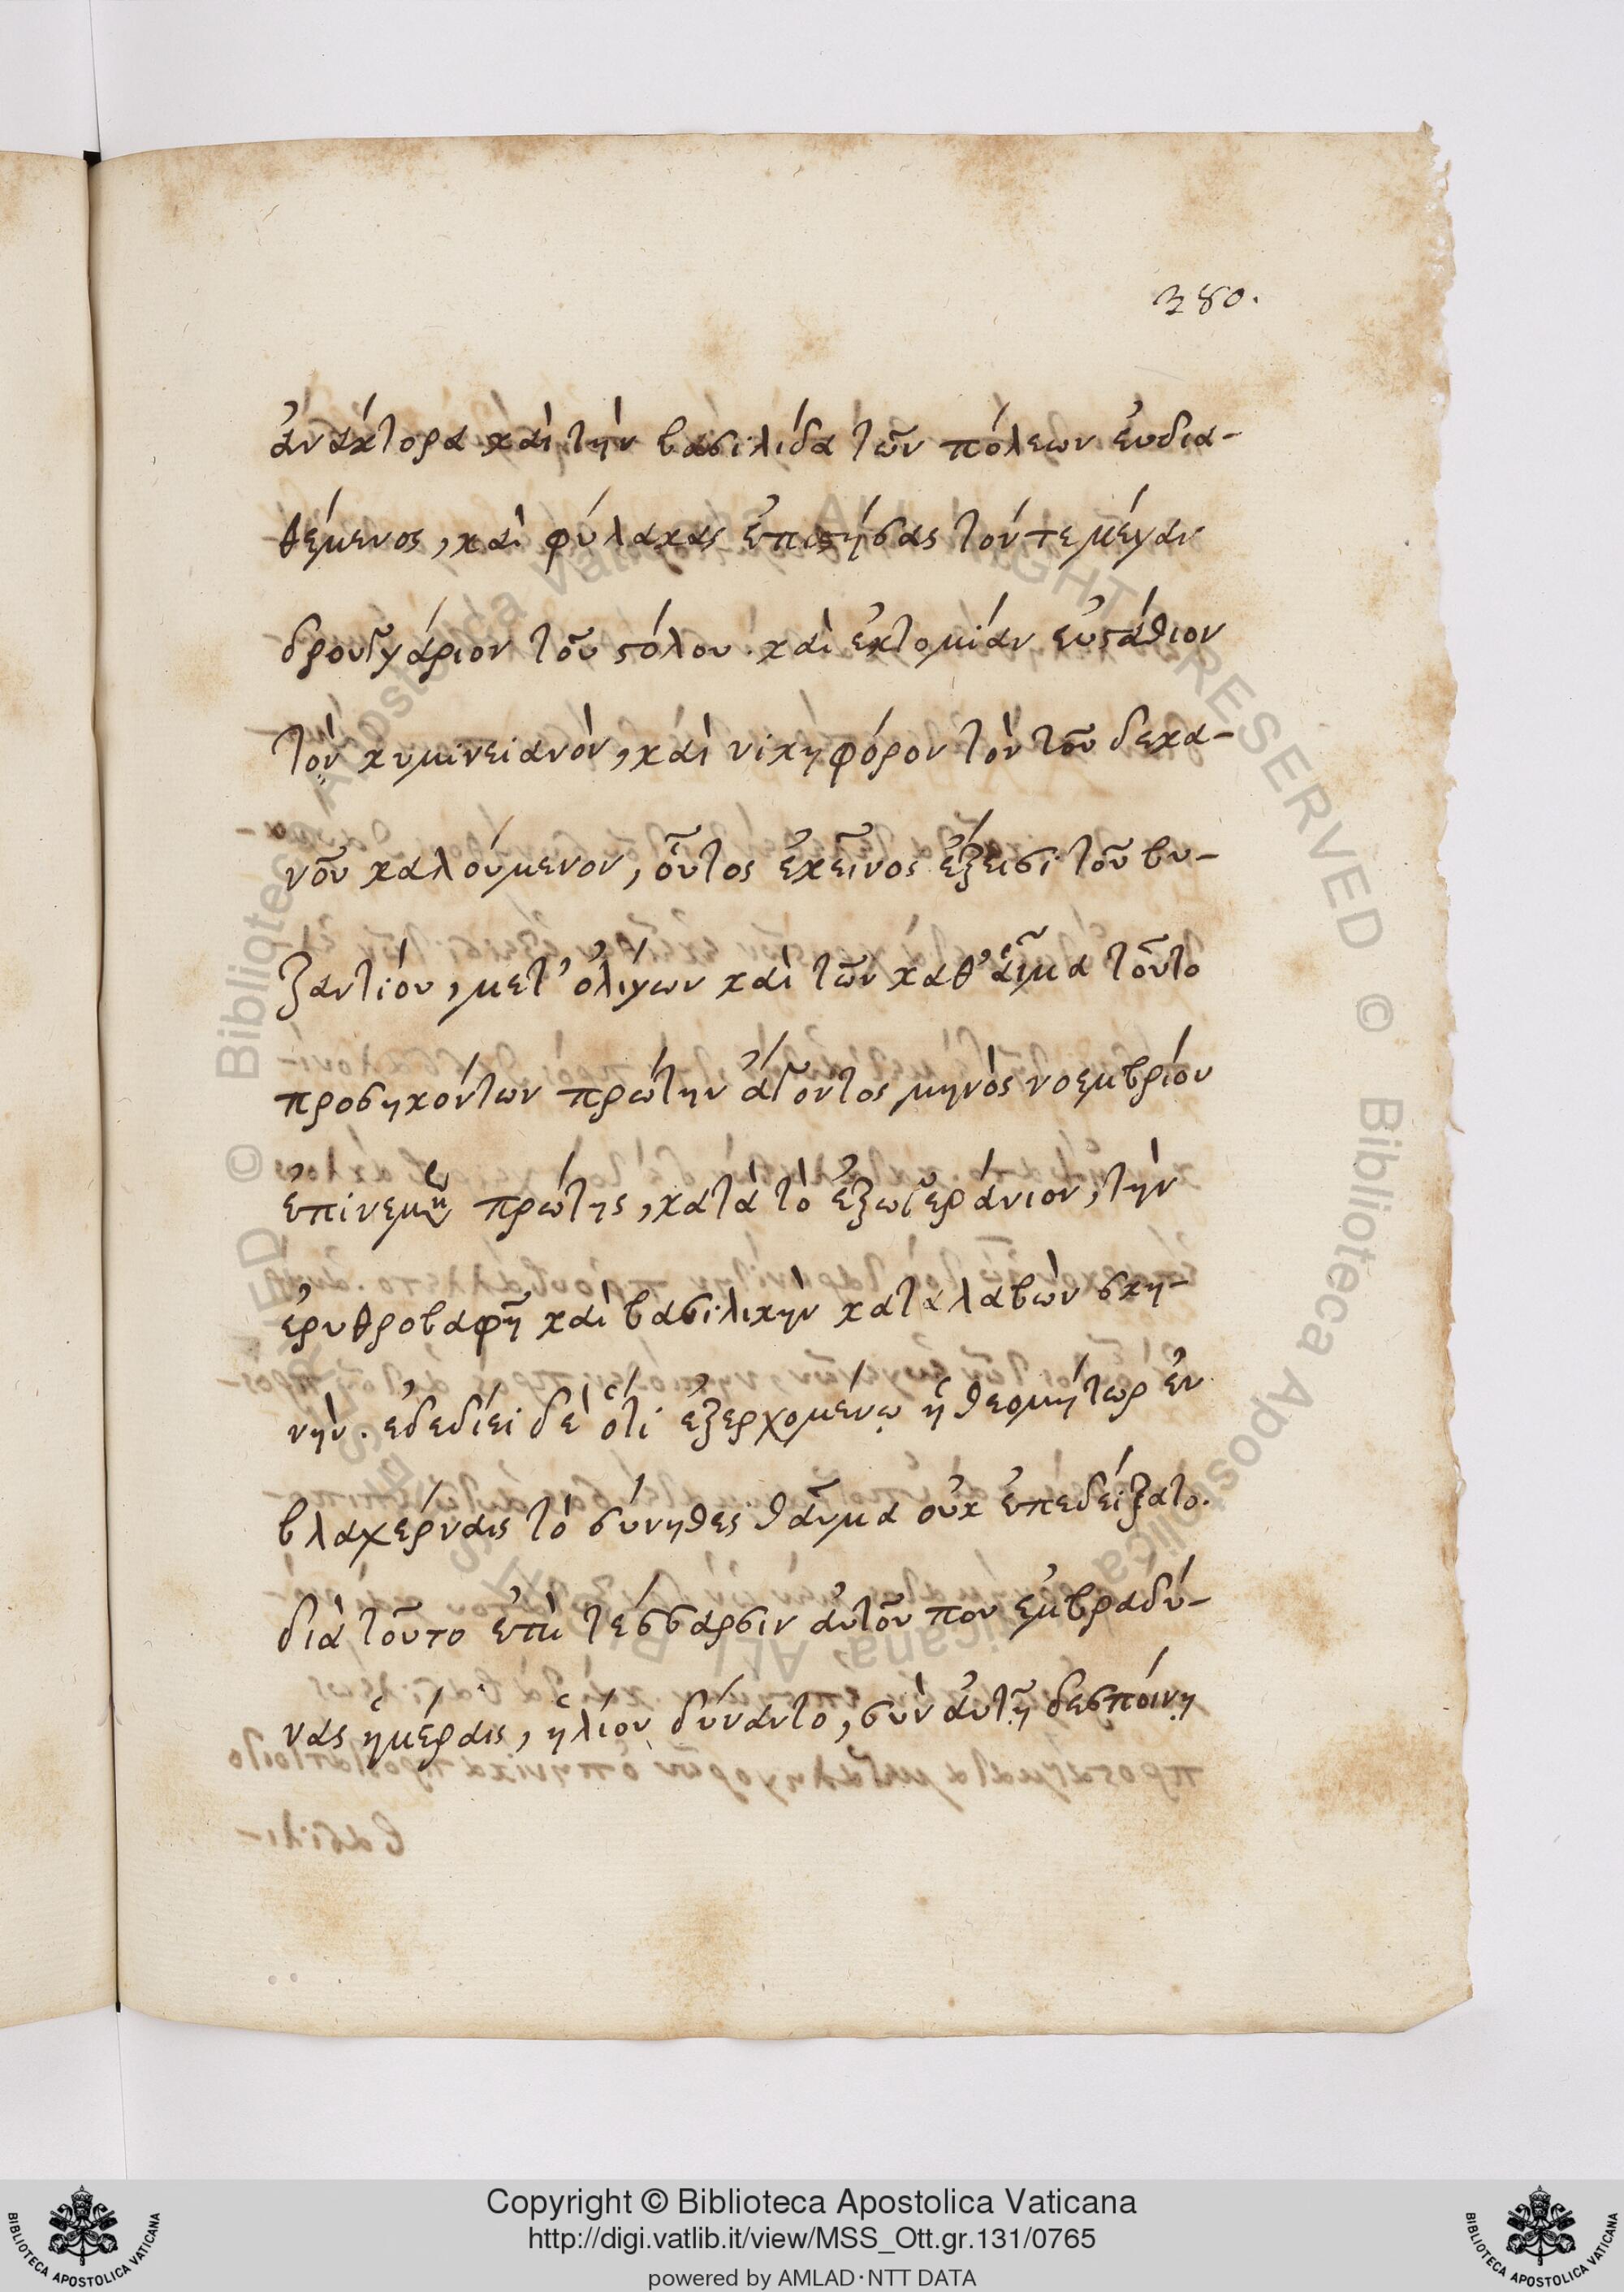 380.
ἀνάκτορα καὶ τὴν βασιλίδα τῶν πόλεων εὐδια-
θέμενος, καὶ φύλακας ἐπιστήσας τόν τε μέγαν
δρουγγάριον τοῦ στόλου. καὶ ἐκτομίαν εὐστάθιον
τὸν κυμινειανὸν, καὶ νικηφόρον τὸν τοῦ δεκα-
νοῦ καλούμενον, οὗτος ἐκεῖνος ἔξεισι τοῦ βυ-
ζαντίου, μετ' ὀλίγων καὶ τῶν καθ' αἷμα τοῦτο
προσηκόντων πρώτην ἄγοντος μηνὸς νοεμβρίου
ἐπινεμή πρώτης, κατὰ τὸ ἐξωγεράνιον, τὴν
ἐρυθροβαφῆ καὶ βασιλικὴν καταλαβὼν σκη-
νὴν. ἐδεδίει δὲ ὅτι ἐξερχομένῳ ἡ θεομήτωρ ἐν
βλαχέρναις τὸ σύνηθες θαῦμα οὐκ ἐπεδείξατο.
διὰ τοῦτο ἐπὶ τέσσαρσιν αὐτοῦ που ἐμβραδύ-
νας ἡμέραις, ἡλίου δύναντο, σὺν αὐτῇ δεσποίνῃ
Copyright © Biblioteca Apostolica Vaticana
http://digi.vatlib.it/view/MSS_Ott.gr.131/0765
powered by AMLAD · NTT DATA
BIBLIOTECA APOSTOLICA VATICANA
BIBLIOTECA APOSTOLICA VATICANA